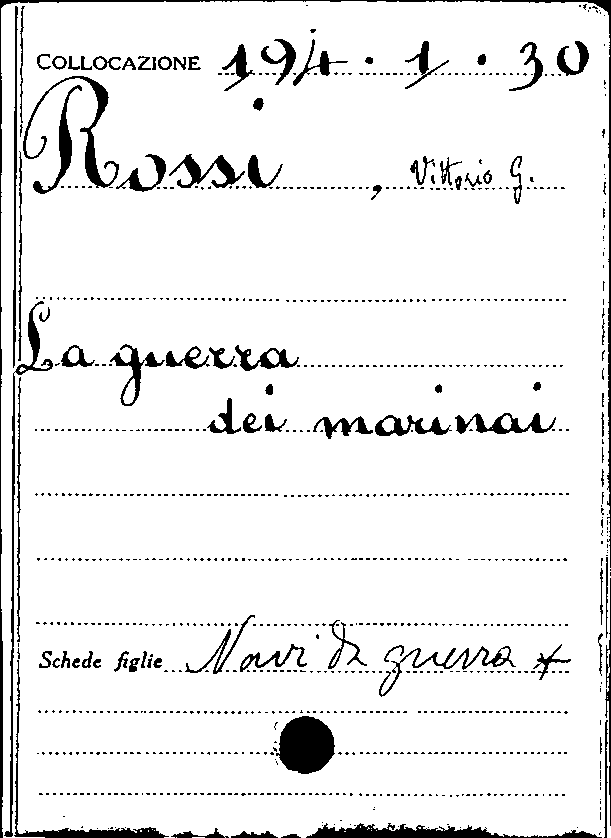 COLLOCAZIONE 194 · 1 · 30
Rossi, Vittorio G.
La guerra
dei marinai
Schede figlie Navi da guerra +